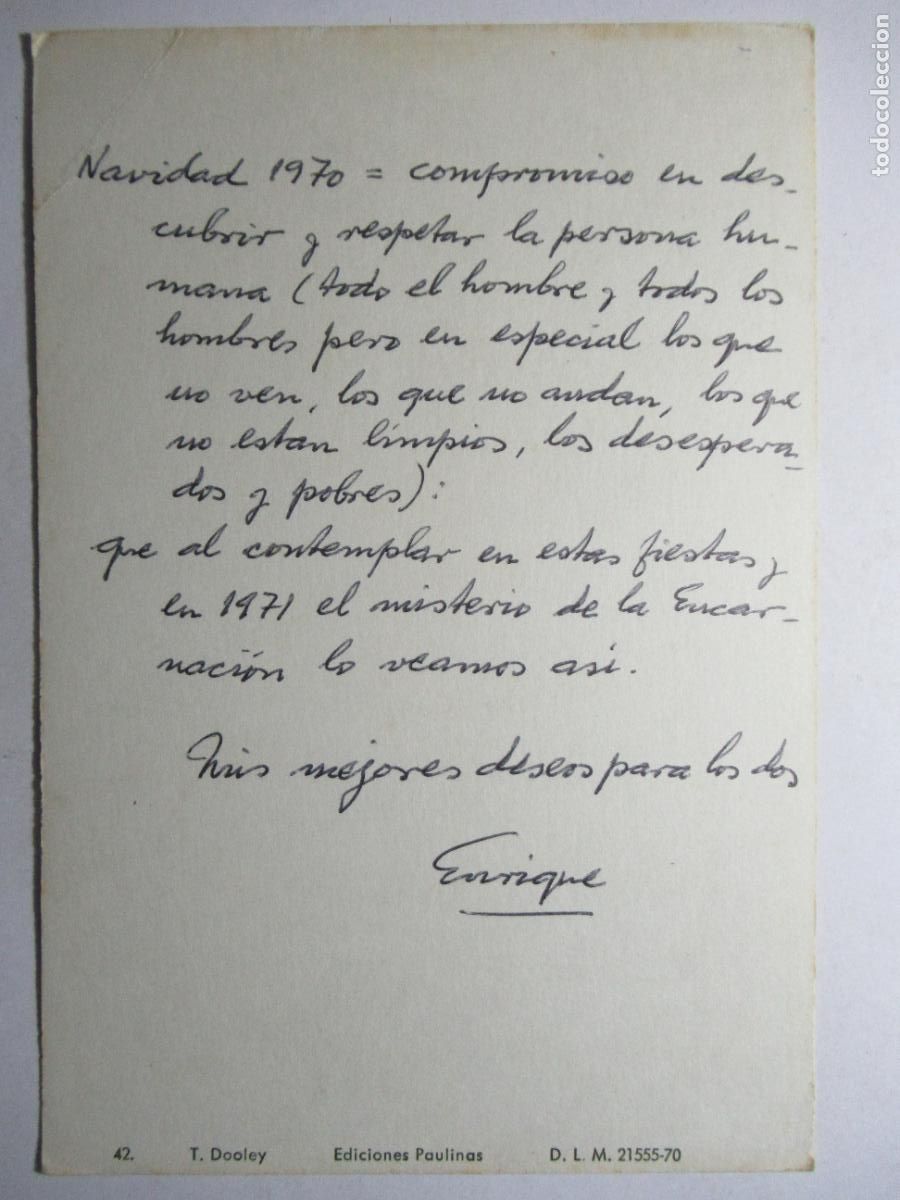 Navidad 1970 = compromiso en des-
cubrir y respetar la persona hu-
mana (todo el hombre y todos los
hombres pero en especial los que
no ven, los que no andan, los que
no estan límpios, los desespera-
dos y pobres):
que al contemplar en estas fiestas y
en 1971 el misterio de la Encar-
nación lo veamos así.
Mis mejores deseos para los dos
Enrique
42. T. Dooley Ediciones Paulinas D. L. M. 21555-70
todocoleccion